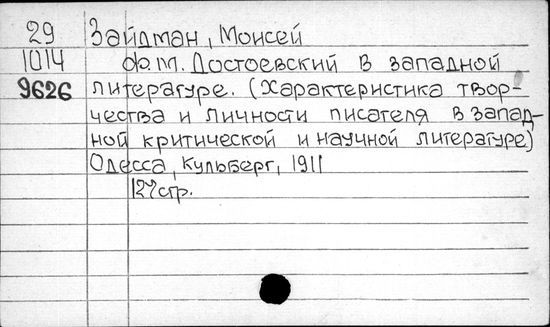 29 Зайдман, Моисей
1014 Ф.М. Достоевский в западной
9626 литературе. (Характеристика твор-
чества и личности писателя в запад-
ной критической и научной литературе)
Одесса, Кульберг, 1911
127 стр.